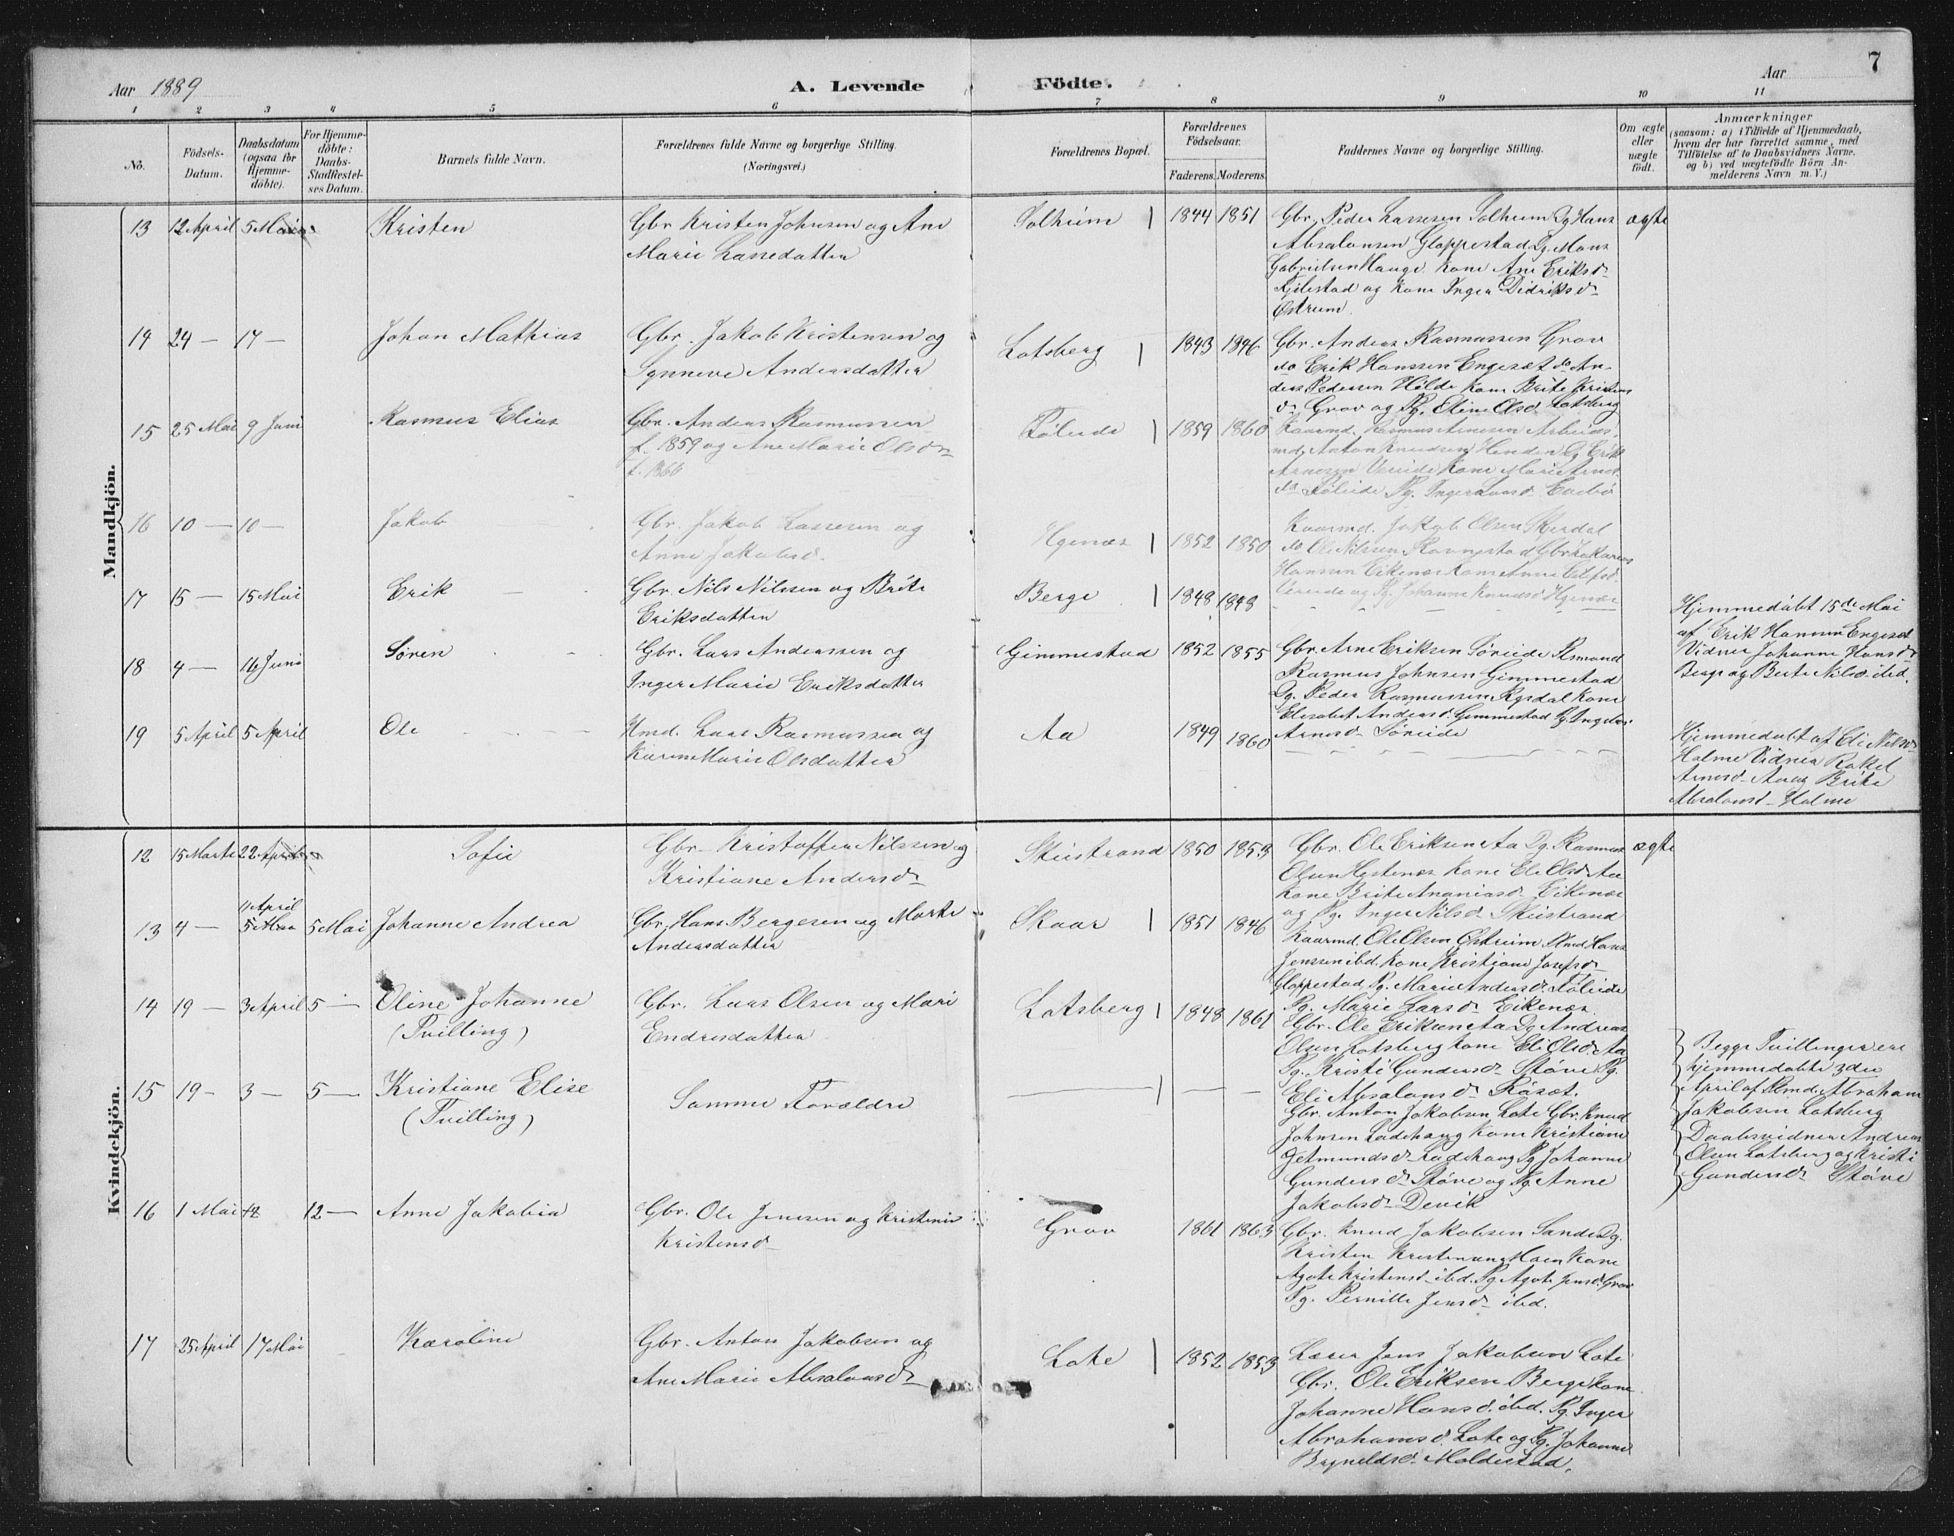 Aar 1889
A. Levende Födte.
Aar
7
1 2 3 4 5 6 7 8 9 10 11
No.
Födsels-Datum.
Daabsdatum (ogsaa for Hjemme-döbte).
For Hjemme-döbte: Daabs-Stadfestel-ses Datum.
Barnets fulde Navn.
Forældrenes fulde Navne og borgerlige Stilling.
(Næringsvei.)
Forældrenes Bopæl.
Forældrenes Födselsaar.
Faderens. Moderens.
Faddernes Navne og borgerlige Stilling.
Om ægte eller uægte födt.
Anmærkninger
(saasom: a) i Tilfælde af Hjemmedaab, hvem der har forrettet samme, med Tilföielse af to Daabsvidners Navne, og b) ved uægtefödte Börn An-melderens Navn m. V.)
Mandkjön.
13 12 April 5 Mai Kristen
Gbr Kristen Johnsen og Ane
Marie Lassedatter
Solheim 1844 1851
Gbr. Peder Lassesen Solheim Dg Hans
Absalonsen Gloppestad Dg. Mons
Gabrielsen Hauge Kone Ane Eriksd
og Kone Inger Didriksd
Østreim
ægte
14 24 — 17 — Johan Mathias
Gbr. Jakob Kristensen og
Synneve Andersdatter
Lotsberg 1843 1846
Gbr. Anders Rasmussen Grov
do Erik Hanssen Engeset do An-
ders Pedersen Hölde Kone Brite Kristens
d Grov og Pg. Eline Olsd Lotsberg
15 25 Mai 9 Juni Rasmus Elias
Gbr. Anders Rasmussen
f. 1859 og Ane Marie Olsd
f. 1860
Föleide 1859 1860
Kaarmd. Rasmus Arnesen Arbeids
md. Anton Knudsen Henden Dg Erik
Arnesen Vereide Kone Marie Arnes
do Föleide Pg. Inger
16 10 — 10 — Jakob
Gbr. Jakob Lassesen og
Anne Jakobsd.
Hgenæs 1852 1850
Kaarmd. Jakob Olsen
do Ole Nilssen Ravnestad Gbr Zakarias
Hanssen Eikenæs Kone Anne
Vereide og Pg. Johanne Hgenæs
17 15 — 15 Mai Erik
Gbr. Nils Nilssen og Brite
Eriksdatter
Berge 1848 1848
Hjemmedöbt 15de Mai
af Erik Hanssen Engeset
Vidner Johanne Hansd
Berge og Berte Nilsd ibid.
18 4 — 16 Juni Sören
Gbr. Lars Anderssen og
Inger Marie Eriksdatter
Gimmestad 1852 1855
Gbr. Arne Eriksen Söreide
Rasmus Johnsen Gimmestad
Dg. Peder Rasmussen Rysdal Kone
Elisabet Andersd. Gimmestad Pg. Ingebor
Arnesd Söreide
19 5 April 5 April Ole
Hmd. Lars Rasmussen og
Karen Marie Olsdatter
Aa 1849 1860
Hjemmedöbt af Eli Nilsd
Holme Vidner Rakel
Arnesd Aa og Brite
Absalonsd Holme
Kvindekjön.
12 15 Marts 22 April Sofie
Gbr Kristoffer Nilssen og
Kristiane Andersd
Skeistrand 1850 1853
Gbr. Ole Eriksen Aa Dg. Rasmus
Olsen Hestenæs Kone Eli Olsd Aa
Kone Brite Ananiasd Eikenæs
og Pg. Inger Nilsd Skeistrand
ægte
13 4 — 11 April 5 Mai 5 Mai Johanne Andrea
Gbr. Hans Bergesen og Marte
Andersdatter
Skaar 1851 1846
Kaarmd. Ole Olsen Östreim Hans
Jenssen ibd. Kone Kristiane Josefsd
Gloppestad Pg. Marie Andersd Föleide
Pg. Marie Larsd Eikenæs
14 19 — 3 April 5 — Oline Johanne
(Tvilling)
Gbr. Lars Olsen og Mari
Endresdatter
Lotsberg 1848 1861
Gbr. Ole Eriksen Aa Dg Andreas
Olsen Lotsberg Kone Eli Olsd Aa
Pg. Kristi Gundersd Störe Pg.
Eli Absalonsd Röset.
Begge Tvillinger ere
hjemmedöbte 3die
April af Abraham
Jakobsen Lotsberg
Daabsvidner Andreas
Olsen Lotsberg og Kristi
Gundersd Störe
15 19 — 3 — 5 — Kristiane Elise
(Tvilling)
Samme Forældre
Gbr. Anton Jakobsen Lote Gbr. Knud
Johnsen Ladehaug Kone Kristiane
Jetmundsd Ladehaug Pg Johanne
Gundersd Störe og Pg. Anne
Jakobsd Devik
16 1 Mai 12 12 — Anne Jakobia
Gbr. Ole Jensen og Kristense
Kristensd
Grov 1861 1863
Gbr. Knud Jakobsen Sande Dg.
Kristen Kristensen Moen Kone
Agote Kristensd ibid. Pg Agote Jensd. Grov
Pg. Pernille Jensd ibid.
17 25 April 17 Mai Karoline
Gbr. Anton Jakobsen og
Ane Marie Absalonsd
Lote 1852 1853
Lærer Jens Jakobsen Lote
Gbr. Ole Eriksen Berge Kone
Johanne Hansd. ibid. Pg. Inger
Abrahamsd. Lote og Pg. Johanne
Brynildsd Moldestad.